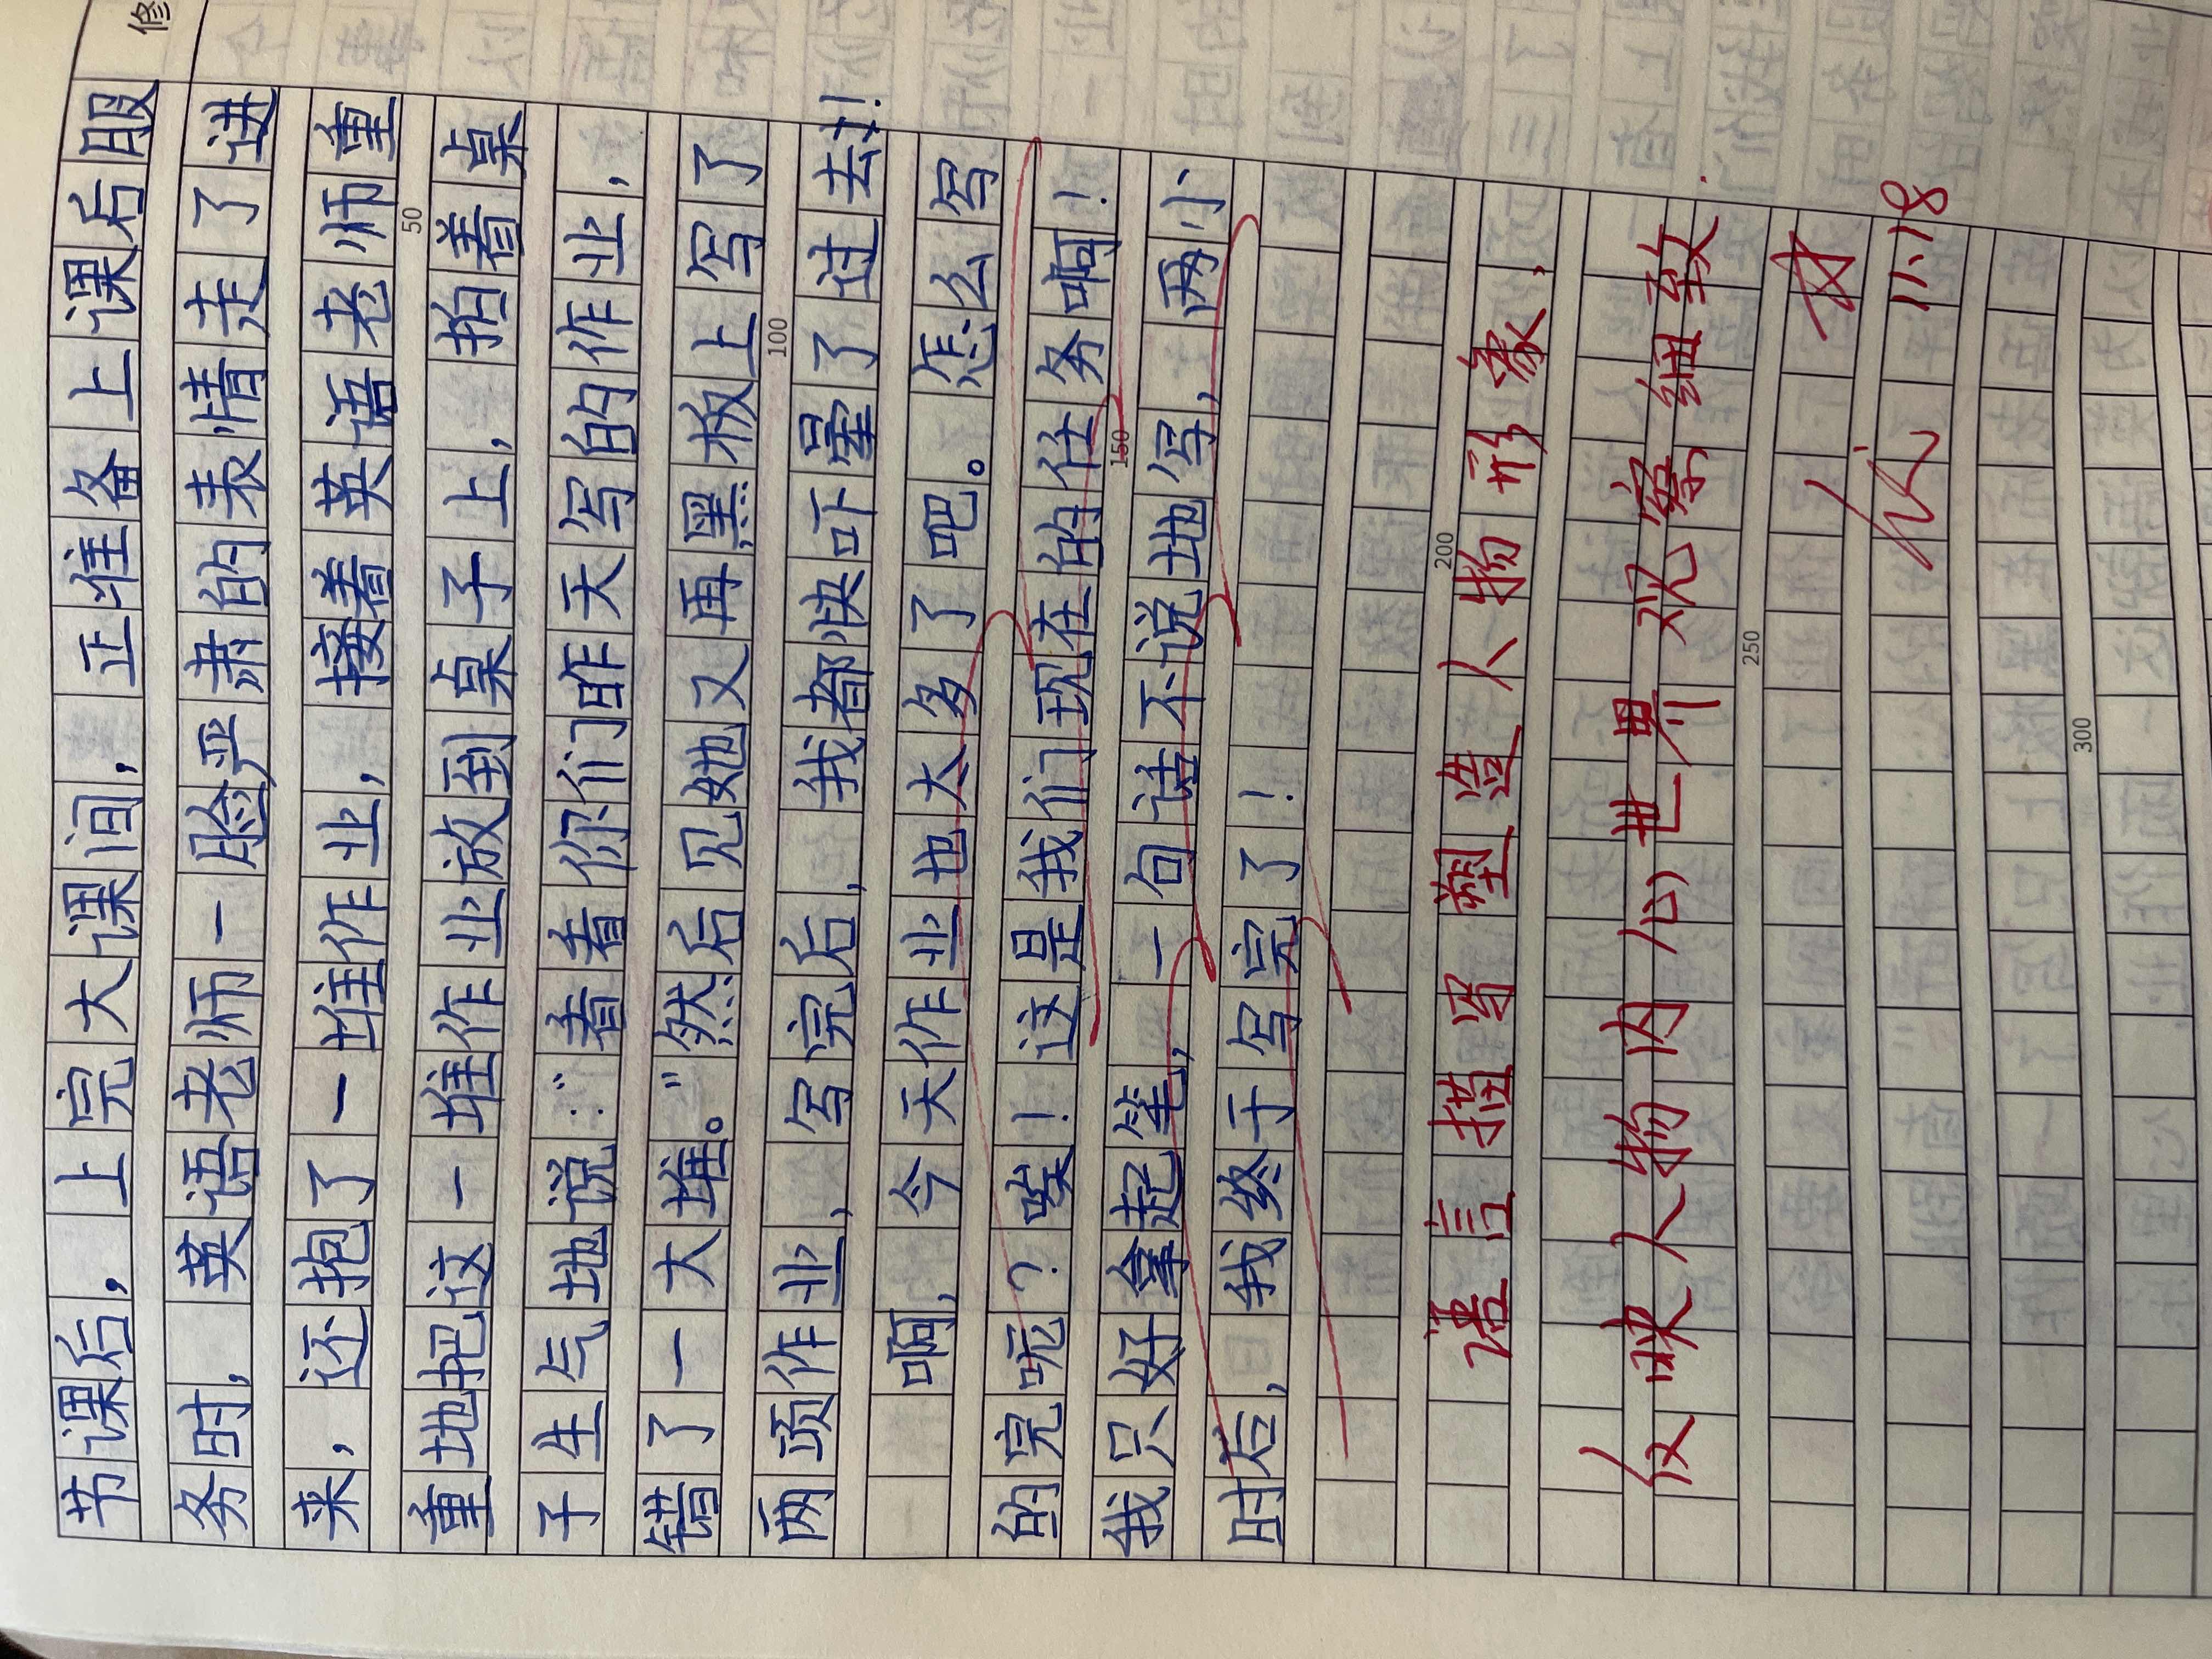 修
节课后，上完大课间，正准备上课后服
务时，英语老师一脸严肃的表情走了进
来，还抱了一堆作业，接着英语老师重
50
重地把这一堆作业放到桌子上，拍着桌
子生气地说："看看你们昨天写的作业，
错了一大堆。"然后见她又再黑板上写了
100
两项作业，写完后，我都快吓晕了过去！
啊，今天作业也太多了吧。怎么写
的完呢？唉！这是我们现在的任务啊！
150
我只好拿起笔，一句话不说地写，两小
时后，我终于写完了！
200
语言描写塑造人物形象，
反映人物内心世界 观察细致
250
优
11.18
300